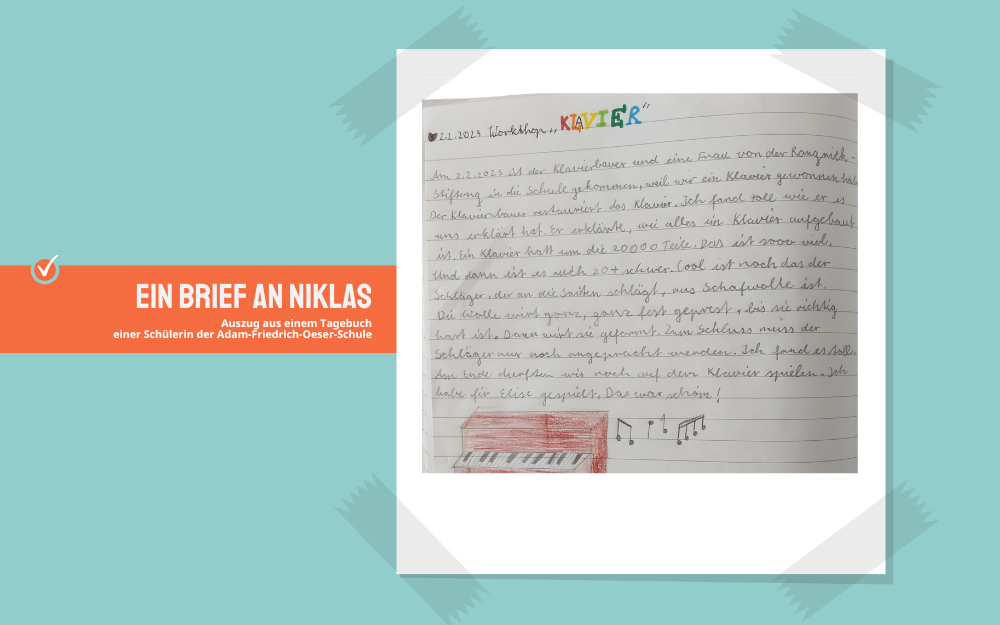 EIN BRIEF AN NIKLAS
Auszug aus einem Tagebuch
einer Schülerin der Adam-Friedrich-Oeser-Schule
2.2.2023 Workshop „KLAVIER“
Am 2.2.2023 ist der Klavierbauer und eine Frau von der
Stiftung in die Schule gekommen, weil wir ein Klavier gewonnen
Der Klavierbauer restauriert das Klavier. Ich fand toll wie er es
uns erklärt hat. Er erklärte, wie alles im Klavier aufgebaut
ist. Ein Klavier hatt um die 20000 Teile. Das ist sooo viel.
Und dann ist es auch 20+ schwer. Cool ist noch das der
Schläger, der an die Saiten schlägt, aus Schafwolle ist.
Die Wolle wirt ganz, ganz fest geprest, bis sie richtig
hart ist. Dann wirt sie geformt. Zum Schluss muss der
Schläger nur noch angepracht werden. Ich fand es toll.
Am Ende durften wir noch auf dem Klavier spielen. Ich
habe für Elise gespielt. Das war schön!